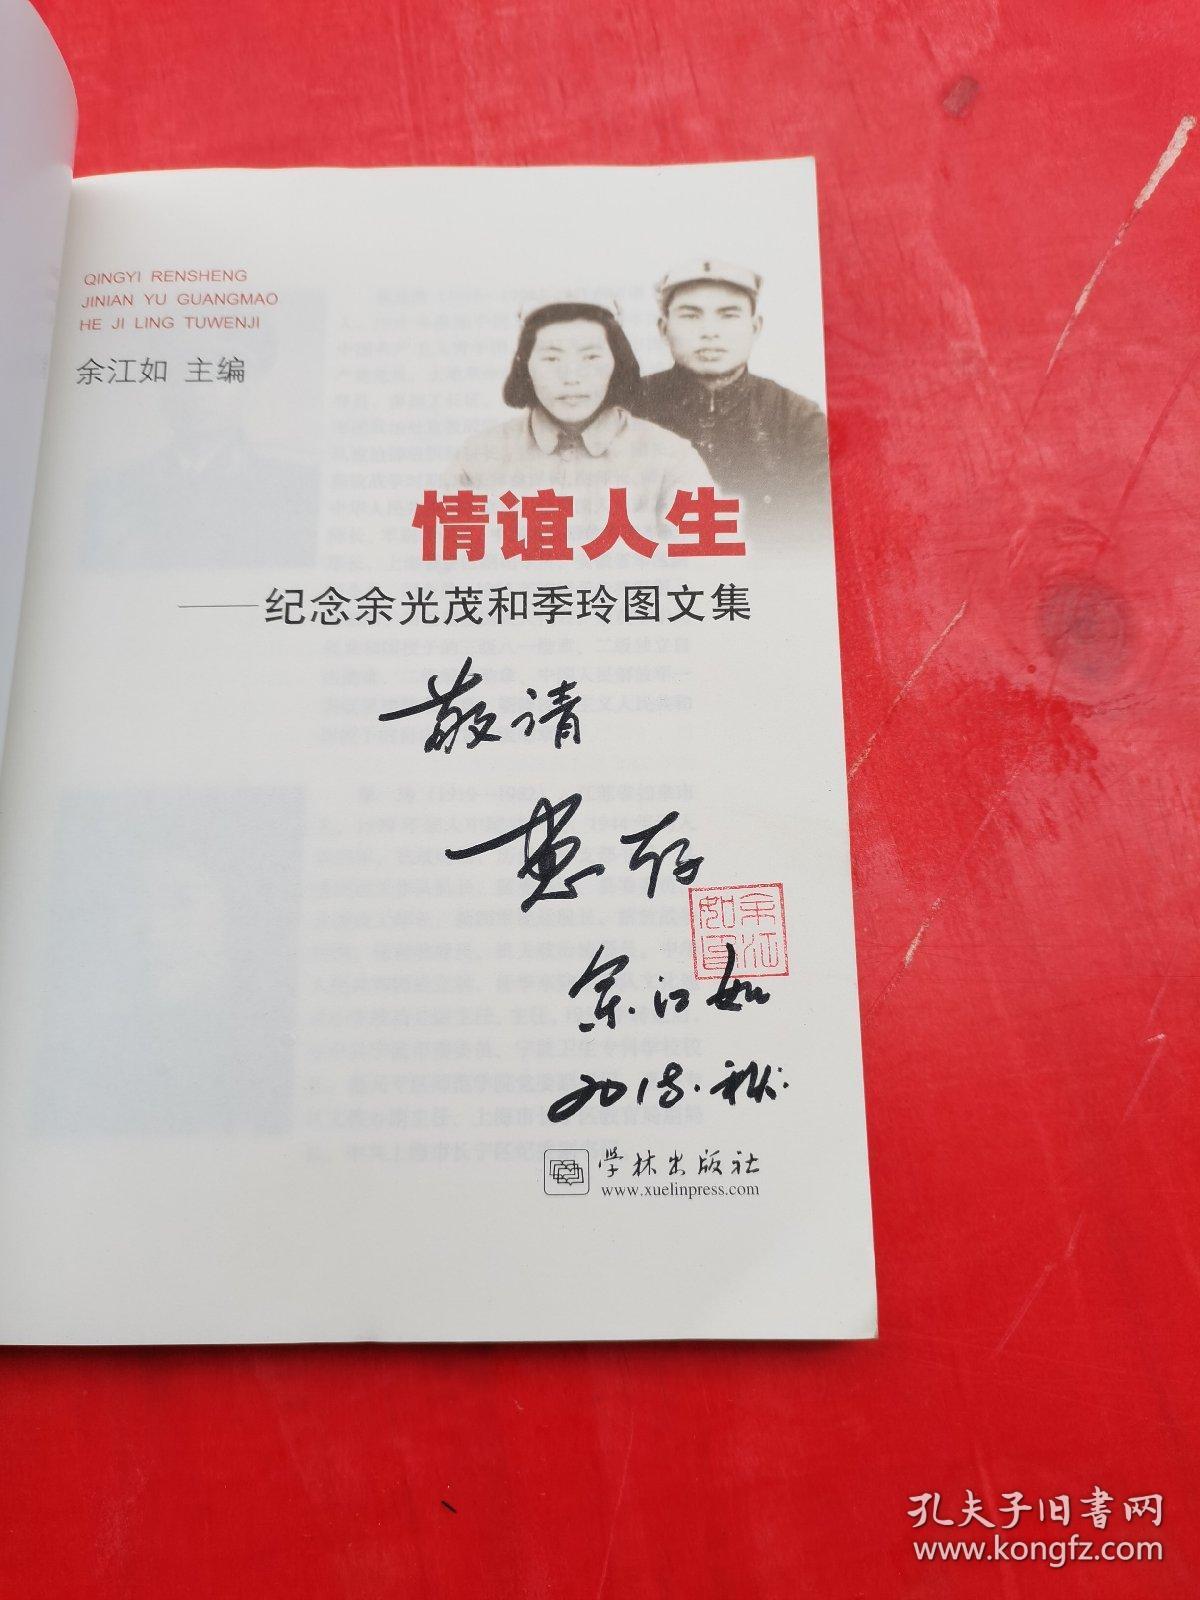 QINGYI RENSHENG
JINIAN YU GUANGMAO
HE JI LING TUWENJI
余江如 主编
情谊人生
——纪念余光茂和季玲图文集
敬请
惠存
余江如印
余江如
2015.秋
学林出版社
www.xuelinpress.com
孔夫子旧书网
www.kongfz.com